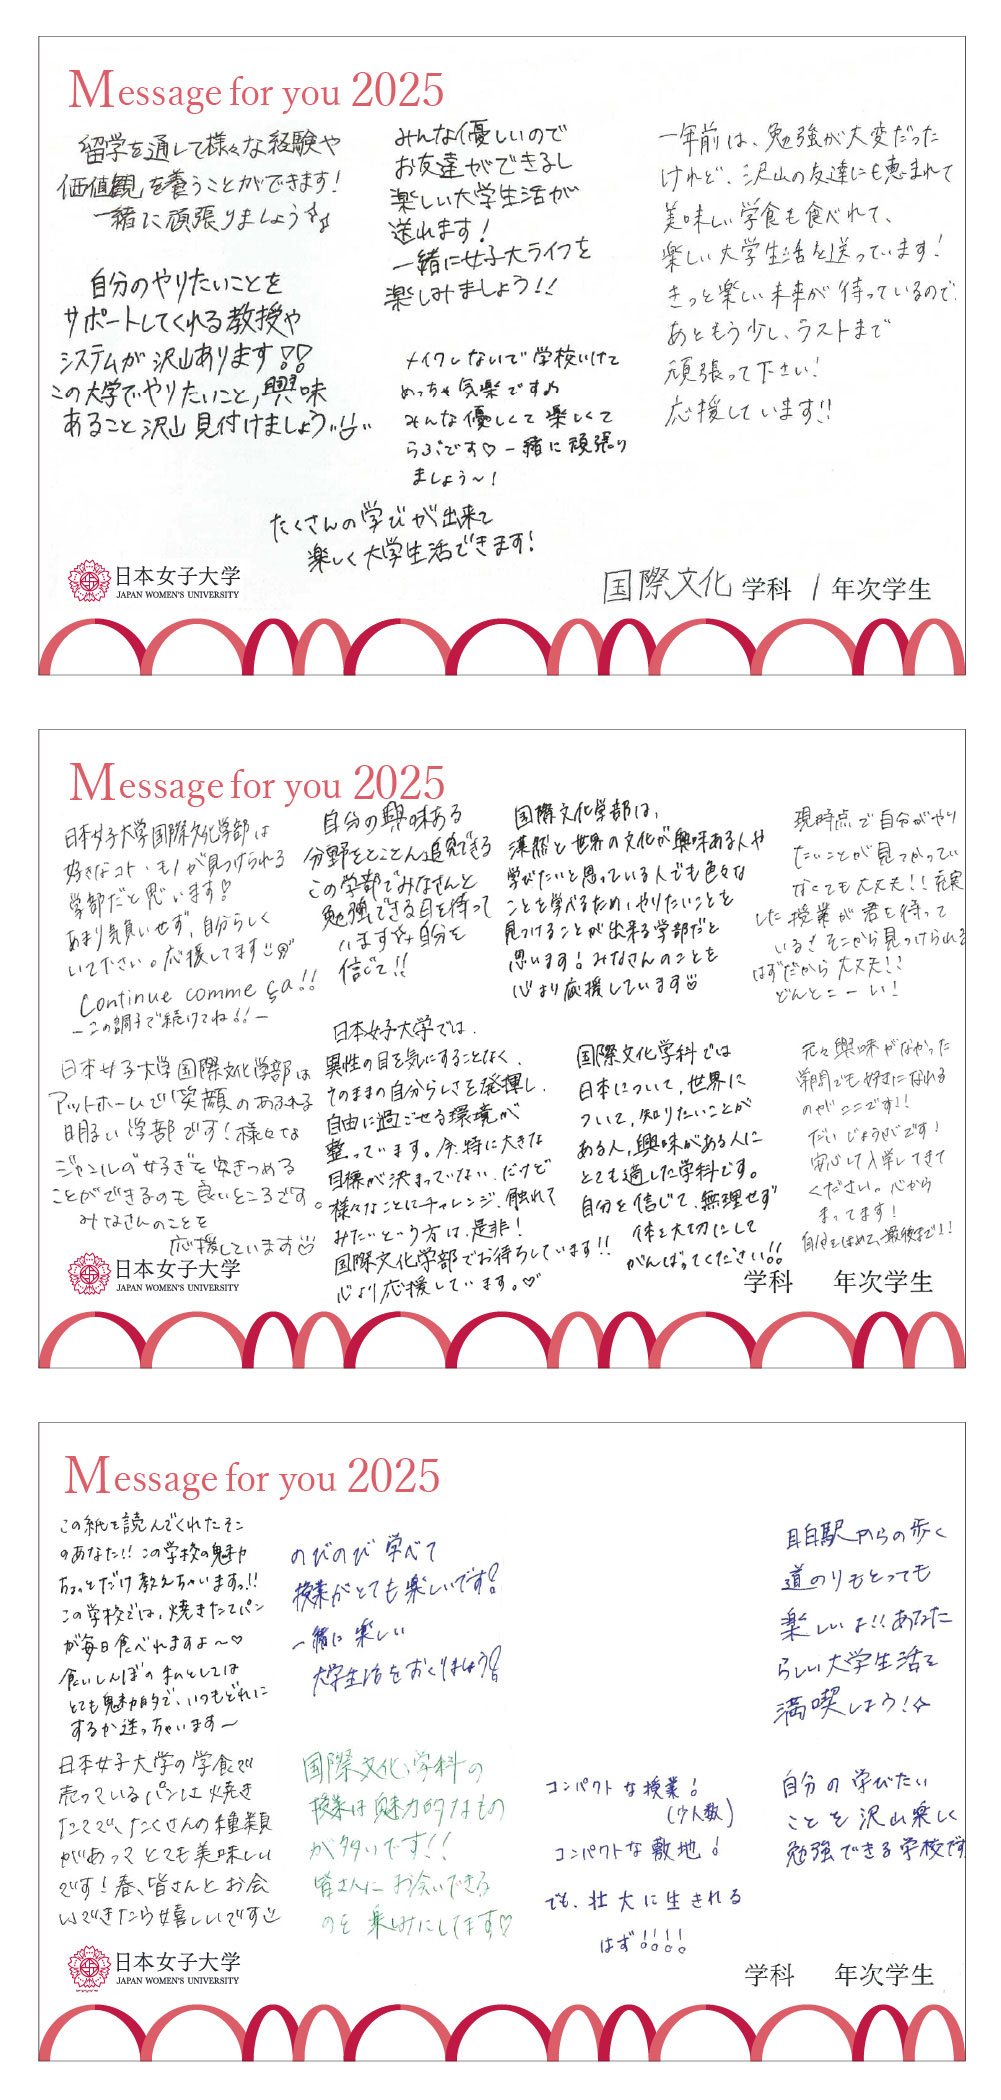 Message for you 2025
留学を通して様々な経験や
価値観を養うことができます!
一緒に頑張りましょう
自分のやりたいことを
サポートしてくれる教授や
システムが沢山あります!!
この大学でやりたいこと,興味
あること沢山見付けましょう
みんな優しいので
お友達ができるし
楽しい大学生活が
送れます!
一緒に女子大ライフを
楽しみましょう!!
メイクしないで学校いけて
めっちゃ気楽です
みんな優しくて楽しくて
らぶです♡一緒に頑張り
ましょう〜!
たくさんの学びが出来て
楽しく大学生活できます!
一年前は、勉強が大変だった
けれど、沢山の友達にも恵まれて
美味しい学食も食べれて、
楽しい大学生活を送っています!
きっと楽しい未来が待っているので、
あともう少し、ラストまで
頑張って下さい!
応援しています!!
日本女子大学
JAPAN WOMEN'S UNIVERSITY
国際文化学科 1年次学生
Message for you 2025
日本女子大学国際文化学部は
好きなコト・モノが見つけられる
学部だと思います!
あまり気負いせず、自分らしく
いて下さい。応援してます
Continue comme ça!!
ーこの調子で続けてね!!ー
自分の興味ある
分野をとことん追究できる
この学部でみなさんと
勉強できる日を待って
います☆自分を
信じて!!
国際文化学部は、
漠然と世界の文化が興味ある人や
学びたいと思っている人でも色々な
ことを学べるため、やりたいことを
見つけることが出来る学部だと
思います!みなさんのことを
心より応援しています
現時点で自分がやり
たいことが見つかってい
なくても大丈夫!!充実
した授業が君を待って
いるさ そこから見つけられる
はずだから大丈夫!!
どんとこーい!
日本女子大学国際文化学部は
アットホームで笑顔のあふれる
明るい学部です!様々な
ジャンルの"好き"を突きつめる
ことができるのも良いところです。
みなさんのことを
応援しています
日本女子大学では、
異性の目を気にすることなく、
そのままの自分らしさを発揮し、
自由に過ごせる環境が
整っています。今、特に大きな
目標が決まっていない、だけど
様々なことにチャレンジ、触れて
みたいという方は、是非!
国際文化学部でお待ちしています!!
心より応援しています。♡
国際文化学科では
日本について、世界に
ついて、知りたいことが
ある人、興味がある人に
とても適した学科です。
自分を信じて、無理せず
体を大切にして
がんばってください!!
元々興味がなかった
学問でも好きになれる
のがここです!!
だいじょうぶです!
安心して入学してきて
ください。心から
まってます!
自分をほめて、最後まで!!
日本女子大学
JAPAN WOMEN'S UNIVERSITY
学科 年次学生
Message for you 2025
この紙を読んでくれたそこ
のあなた!!この学校の魅力
ちょっとだけ教えちゃいますっ!!
この学校では、焼きたてパン
が毎日食べれますよ〜♡
食いしんぼの私としては
とても魅力的で、いつもどれに
するか迷っちゃいます〜
のびのび学べて
授業がとても楽しいです!
一緒に楽しい
大学生活をおくりましょう!
目白駅からの歩く
道のりもとっても
楽しいよ!!あなた
らしい大学生活を
満喫しよう!☆
日本女子大学の学食で
売っているパンは焼き
たてで、たくさんの種類
があってとても美味しい
です!春、皆さんとお会
いできたら嬉しいです
国際文化学科の
授業は魅力的なもの
が多いです!!
皆さんにお会いできる
のを楽しみにしてます♡
コンパクトな授業!
(少人数)
コンパクトな敷地!
でも、壮大に生きれる
はず!!!!
自分の学びたい
ことを沢山楽しく
勉強できる学校です
日本女子大学
JAPAN WOMEN'S UNIVERSITY
学科 年次学生